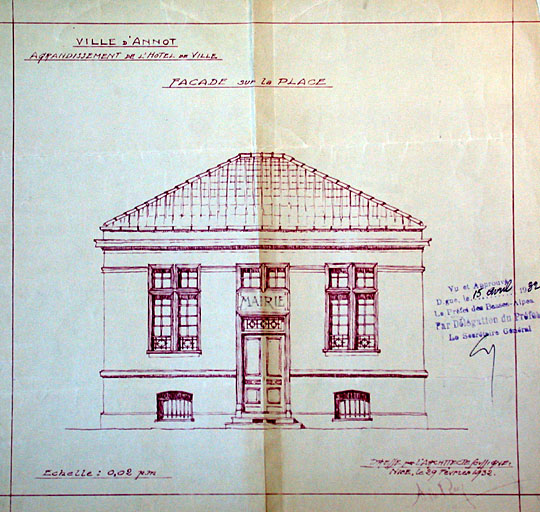 VILLE D'ANNOT
AGRANDISSEMENT DE L'HOTEL DE VILLE
FACADE sur la PLACE
MAIRIE
Vu et Approuvé
Digne, le 15 avril 1932
Le Préfet des Basses-Alpes
Par Délégation du Préfet
Le Secrétaire Général
Echelle: 0,02 p.m
Dressé par l'ARCHITECTE SOUSSIGNÉ.
NICE, le 29 Février 1932.